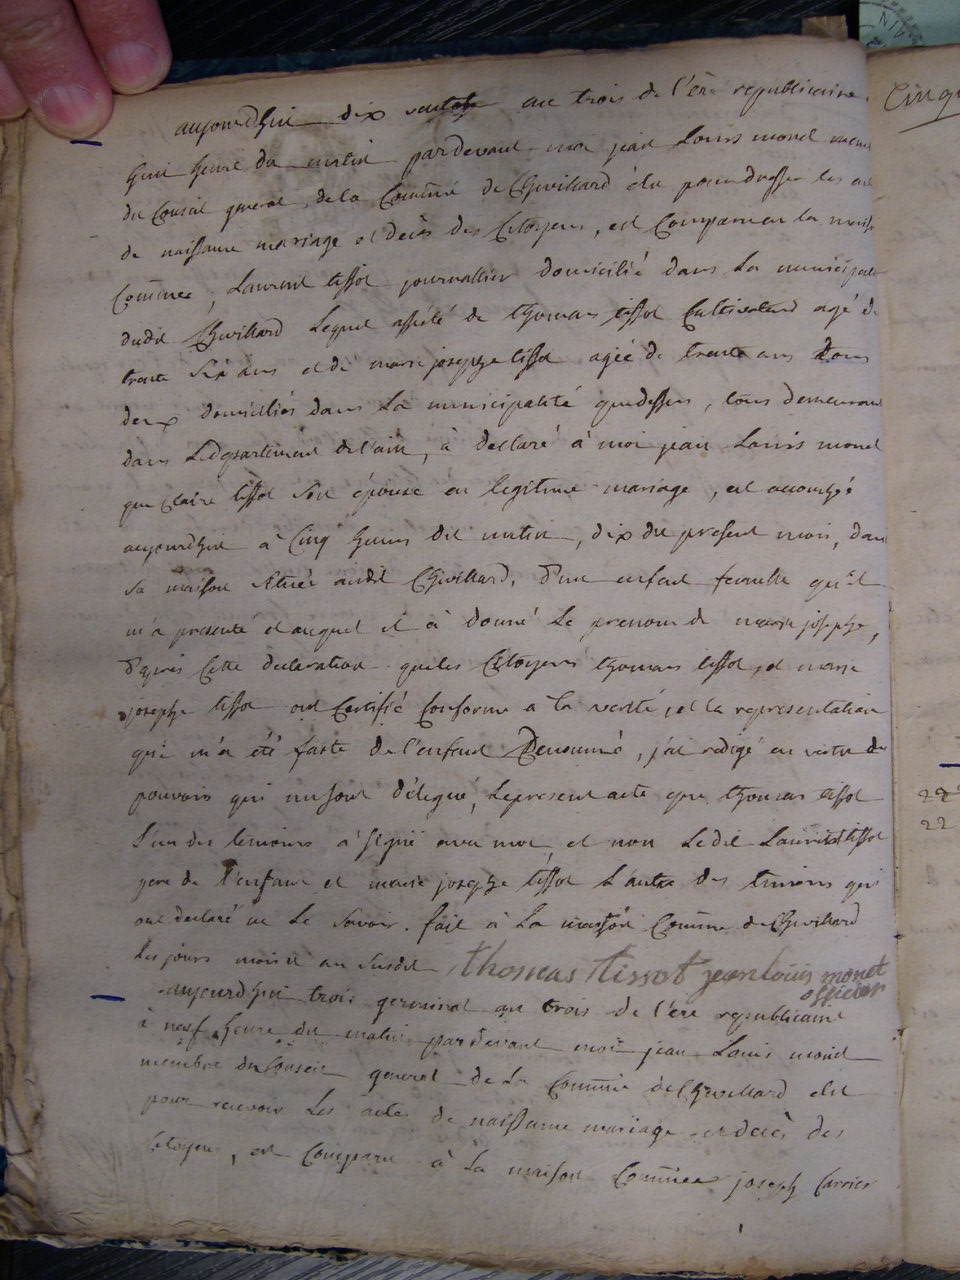 aujourd'hui dix ventose an trois de l'ère republicaine
huit heure du matin pardevant moi jean Louis monet mem
du Conseil general de la Com̃une de Chevillard élu pour dresser les act
de naissance mariage et décès des Citoyens, est Comparu en la mais
Com̃une, Laurent tissot journallier domicilié dans La municipalité
dudit Chevillard Lequel assisté de thomas tissot Cultivateur agé de
trente six ans et de marie josephe tissot agée de trente ans tous
deux domiciliés dans La municipalité quedessus, tous demeurant
dans Ledepartement de l'ain, à declaré à moi jean Louis monet
que Claire tissot son épouse en legitime mariage, est accouchée
aujourdhui à Cinq heures du matin, dix du present mois, dans
sa maison située audit Chevillard, d'un enfant femelle qu'il
m'a presenté et auquel il à donné Le prenom de marie josephe,
d'après Cette declaration que les Citoyens thomas tissot, et marie
josephe tissot ont Certifié Conforme a la verité, et la representation
qui m'a été faite de l'enfant Denommé, j'ai redigé en vertu des
pouvoirs qui me sont délegué, Lepresent acte que thomas tissot
L'un des temoins à signé avec moi, et non Ledit Laurent tissot
pere de l'enfant et marie josephe tissot L'autre des temoins qui
ont declaré ne Le savoir. fait à La maison Com̃une de Chevillard
Les jours mois et an susdit thomas tissot jean louis monet
officier
aujourd'hui trois germinal an trois de l'ère republicaine
à neuf heure du matin pardevant moi jean Louis monet
membre du Conseil general de La Com̃une de Chevillard élu
pour recevoir Les actes de naissance mariage et décès des
Citoyens, est Comparu à La maison Com̃une joseph Carrier
Cinq
22
22